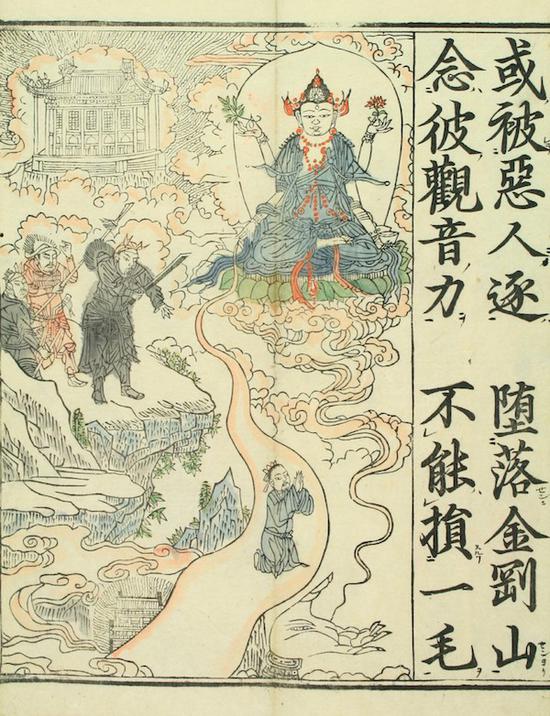 或被惡人逐　墮落金剛山
念彼觀音力　不能損一毛